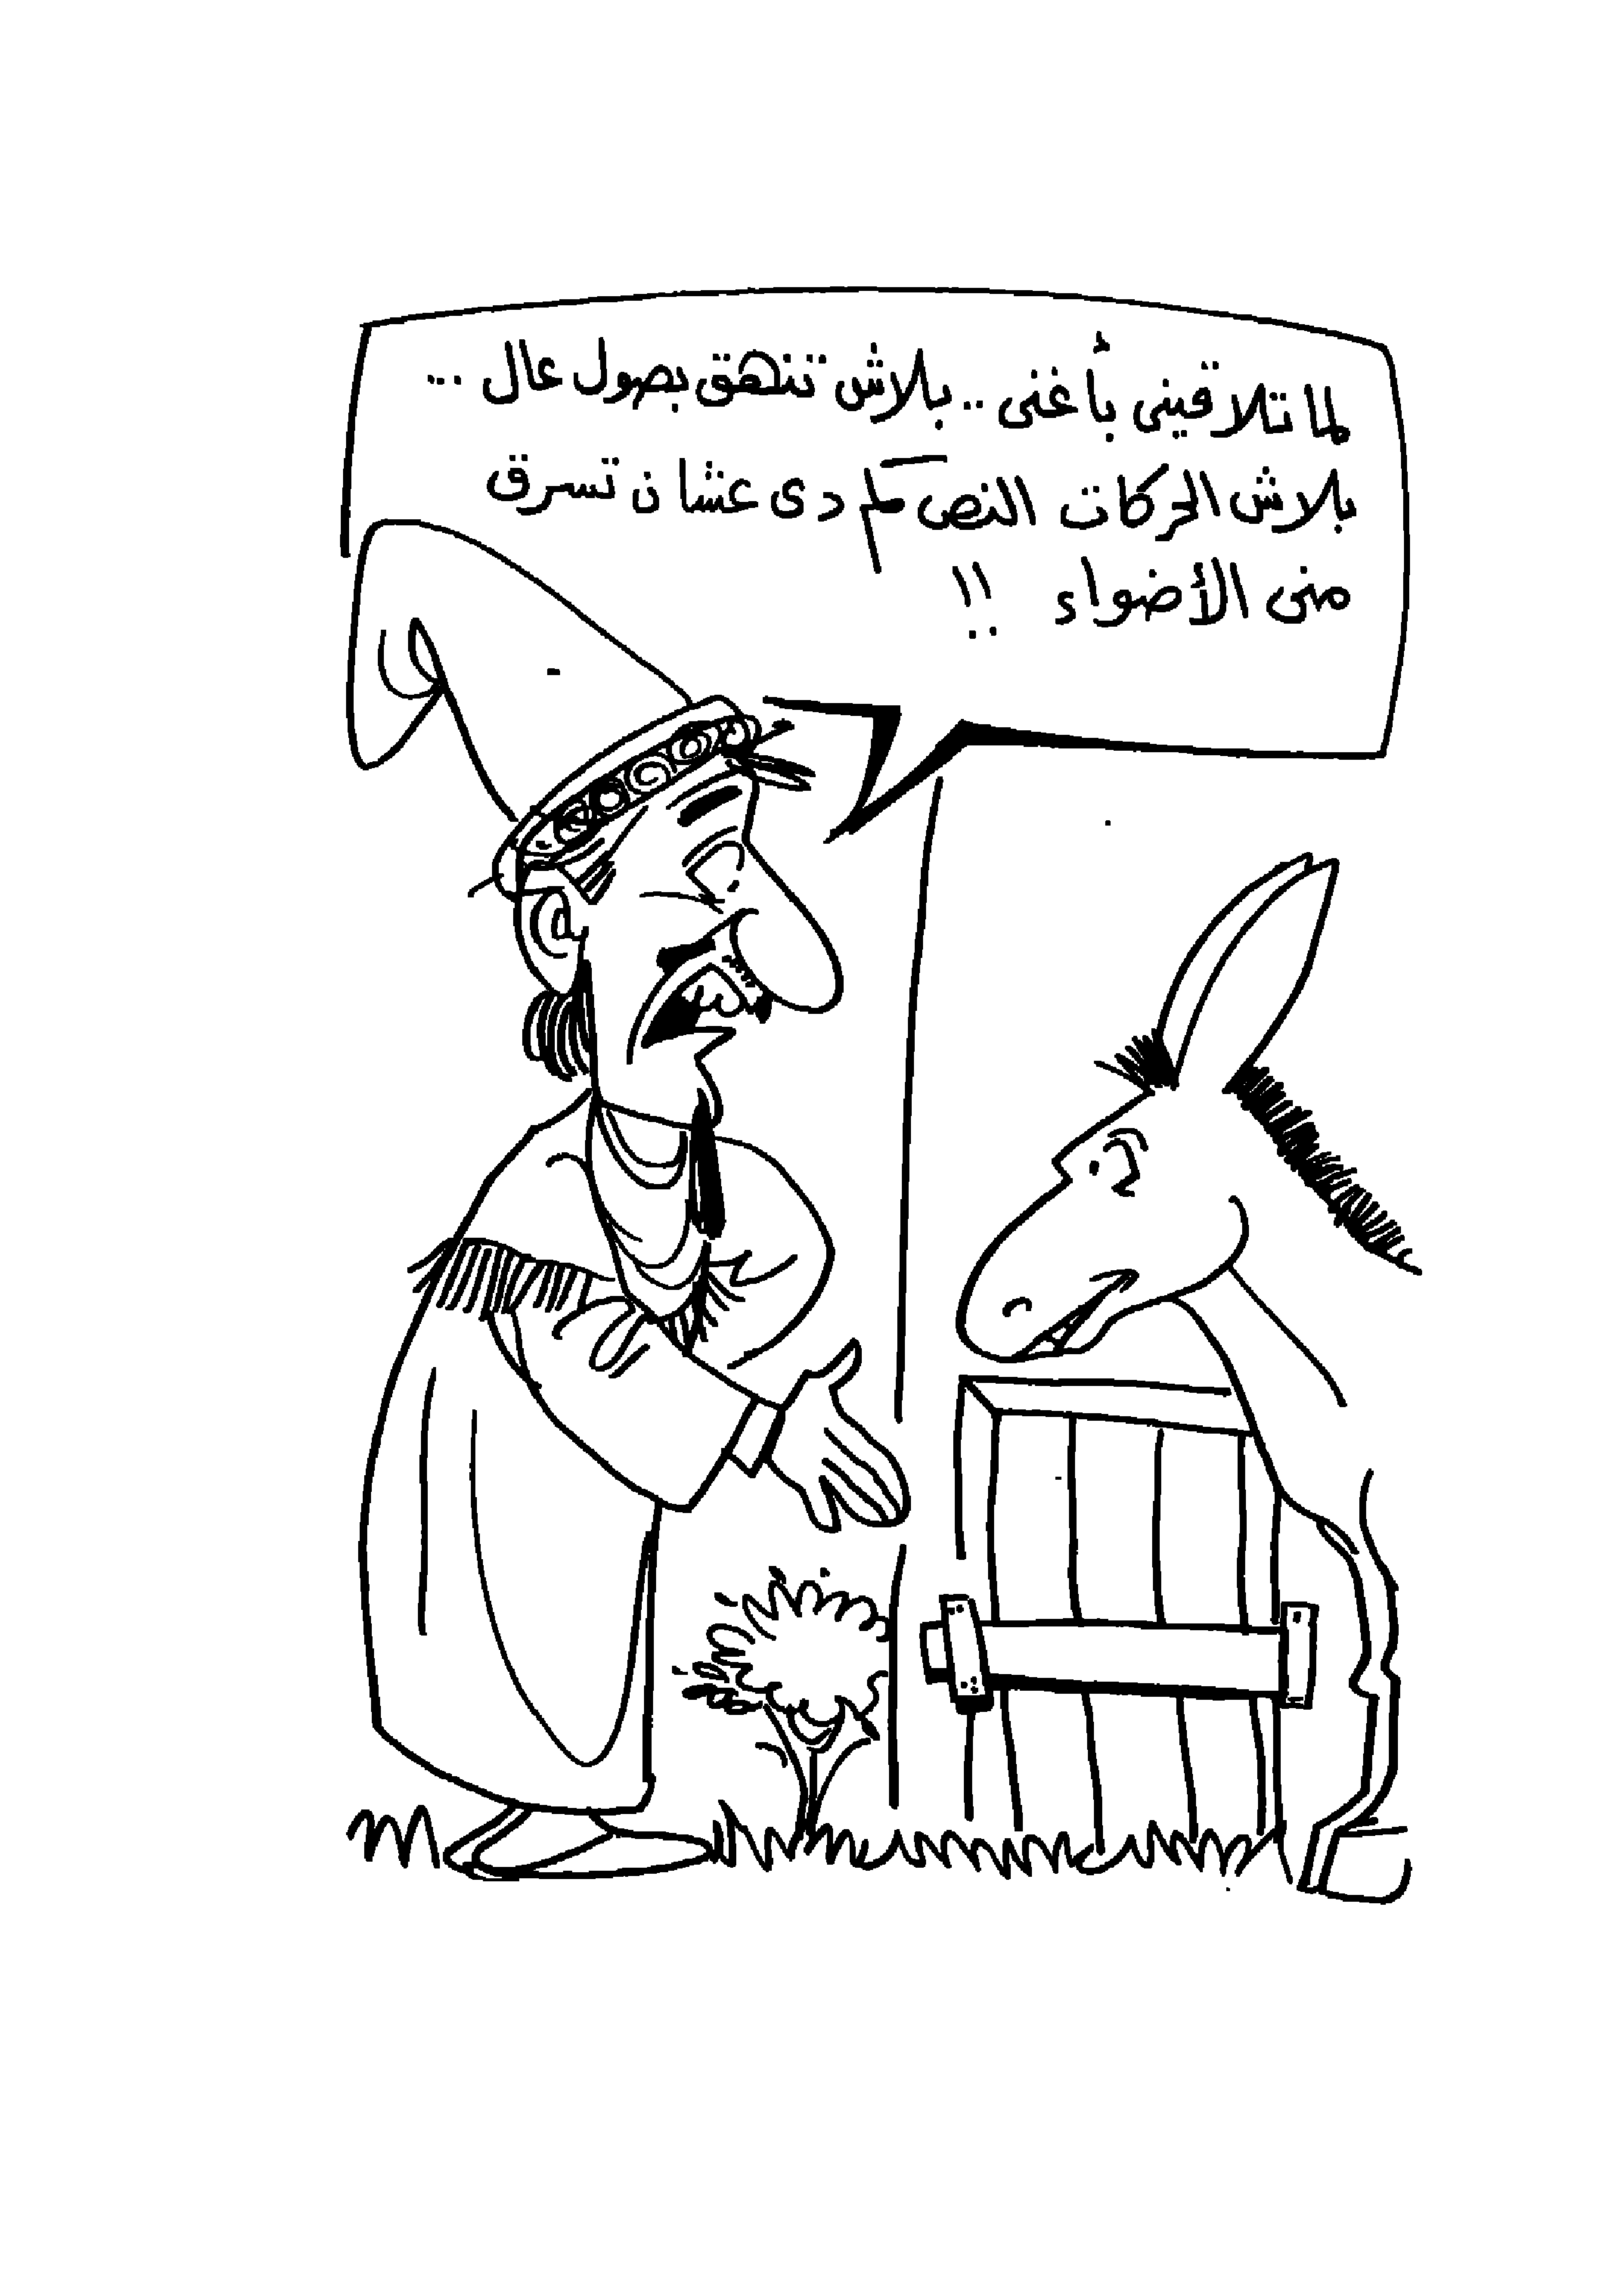 لما تلاقينى بأغنى .. بلاش تنهق بصول عال ...
بلاش الحركات النص كم دى عشان تسرق
منى الأضواء !!